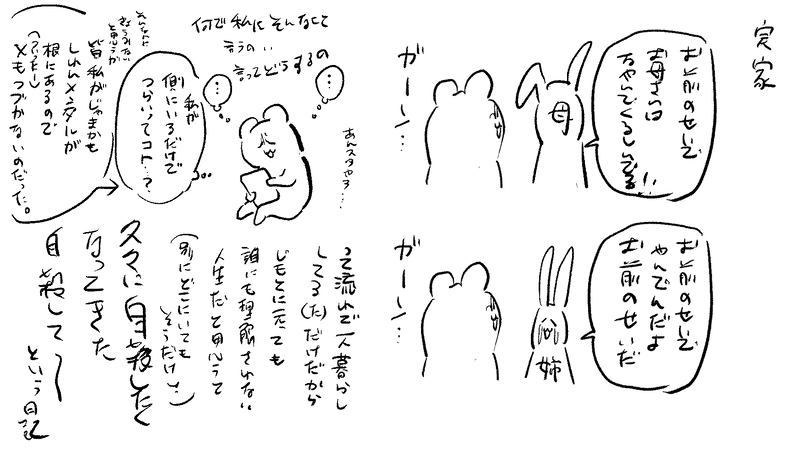 実家
お前のせいで
お母さんは
病んでくるしんでる!!
母
ガーン…
お前のせいで
やんでんだよ
お前のせいだ
姉
ガーン…
何で私にそんなこと
言うの…
言ってどうするの
…
…
あんスタやろ…
私が
側にいるだけで
つらいってコト…?
皆私がじゃまかも
しれんメンタルが
根にあるので
(いつも)
×もつづかないのだった。
って流れで一人暮らし
してる(た)だけだから
じもとに元っても
誰にも理解されない
人生だと思って
(別にどこにいても
そうだけど…)
久々に自殺したく
なってきた
自殺して〜
という日記